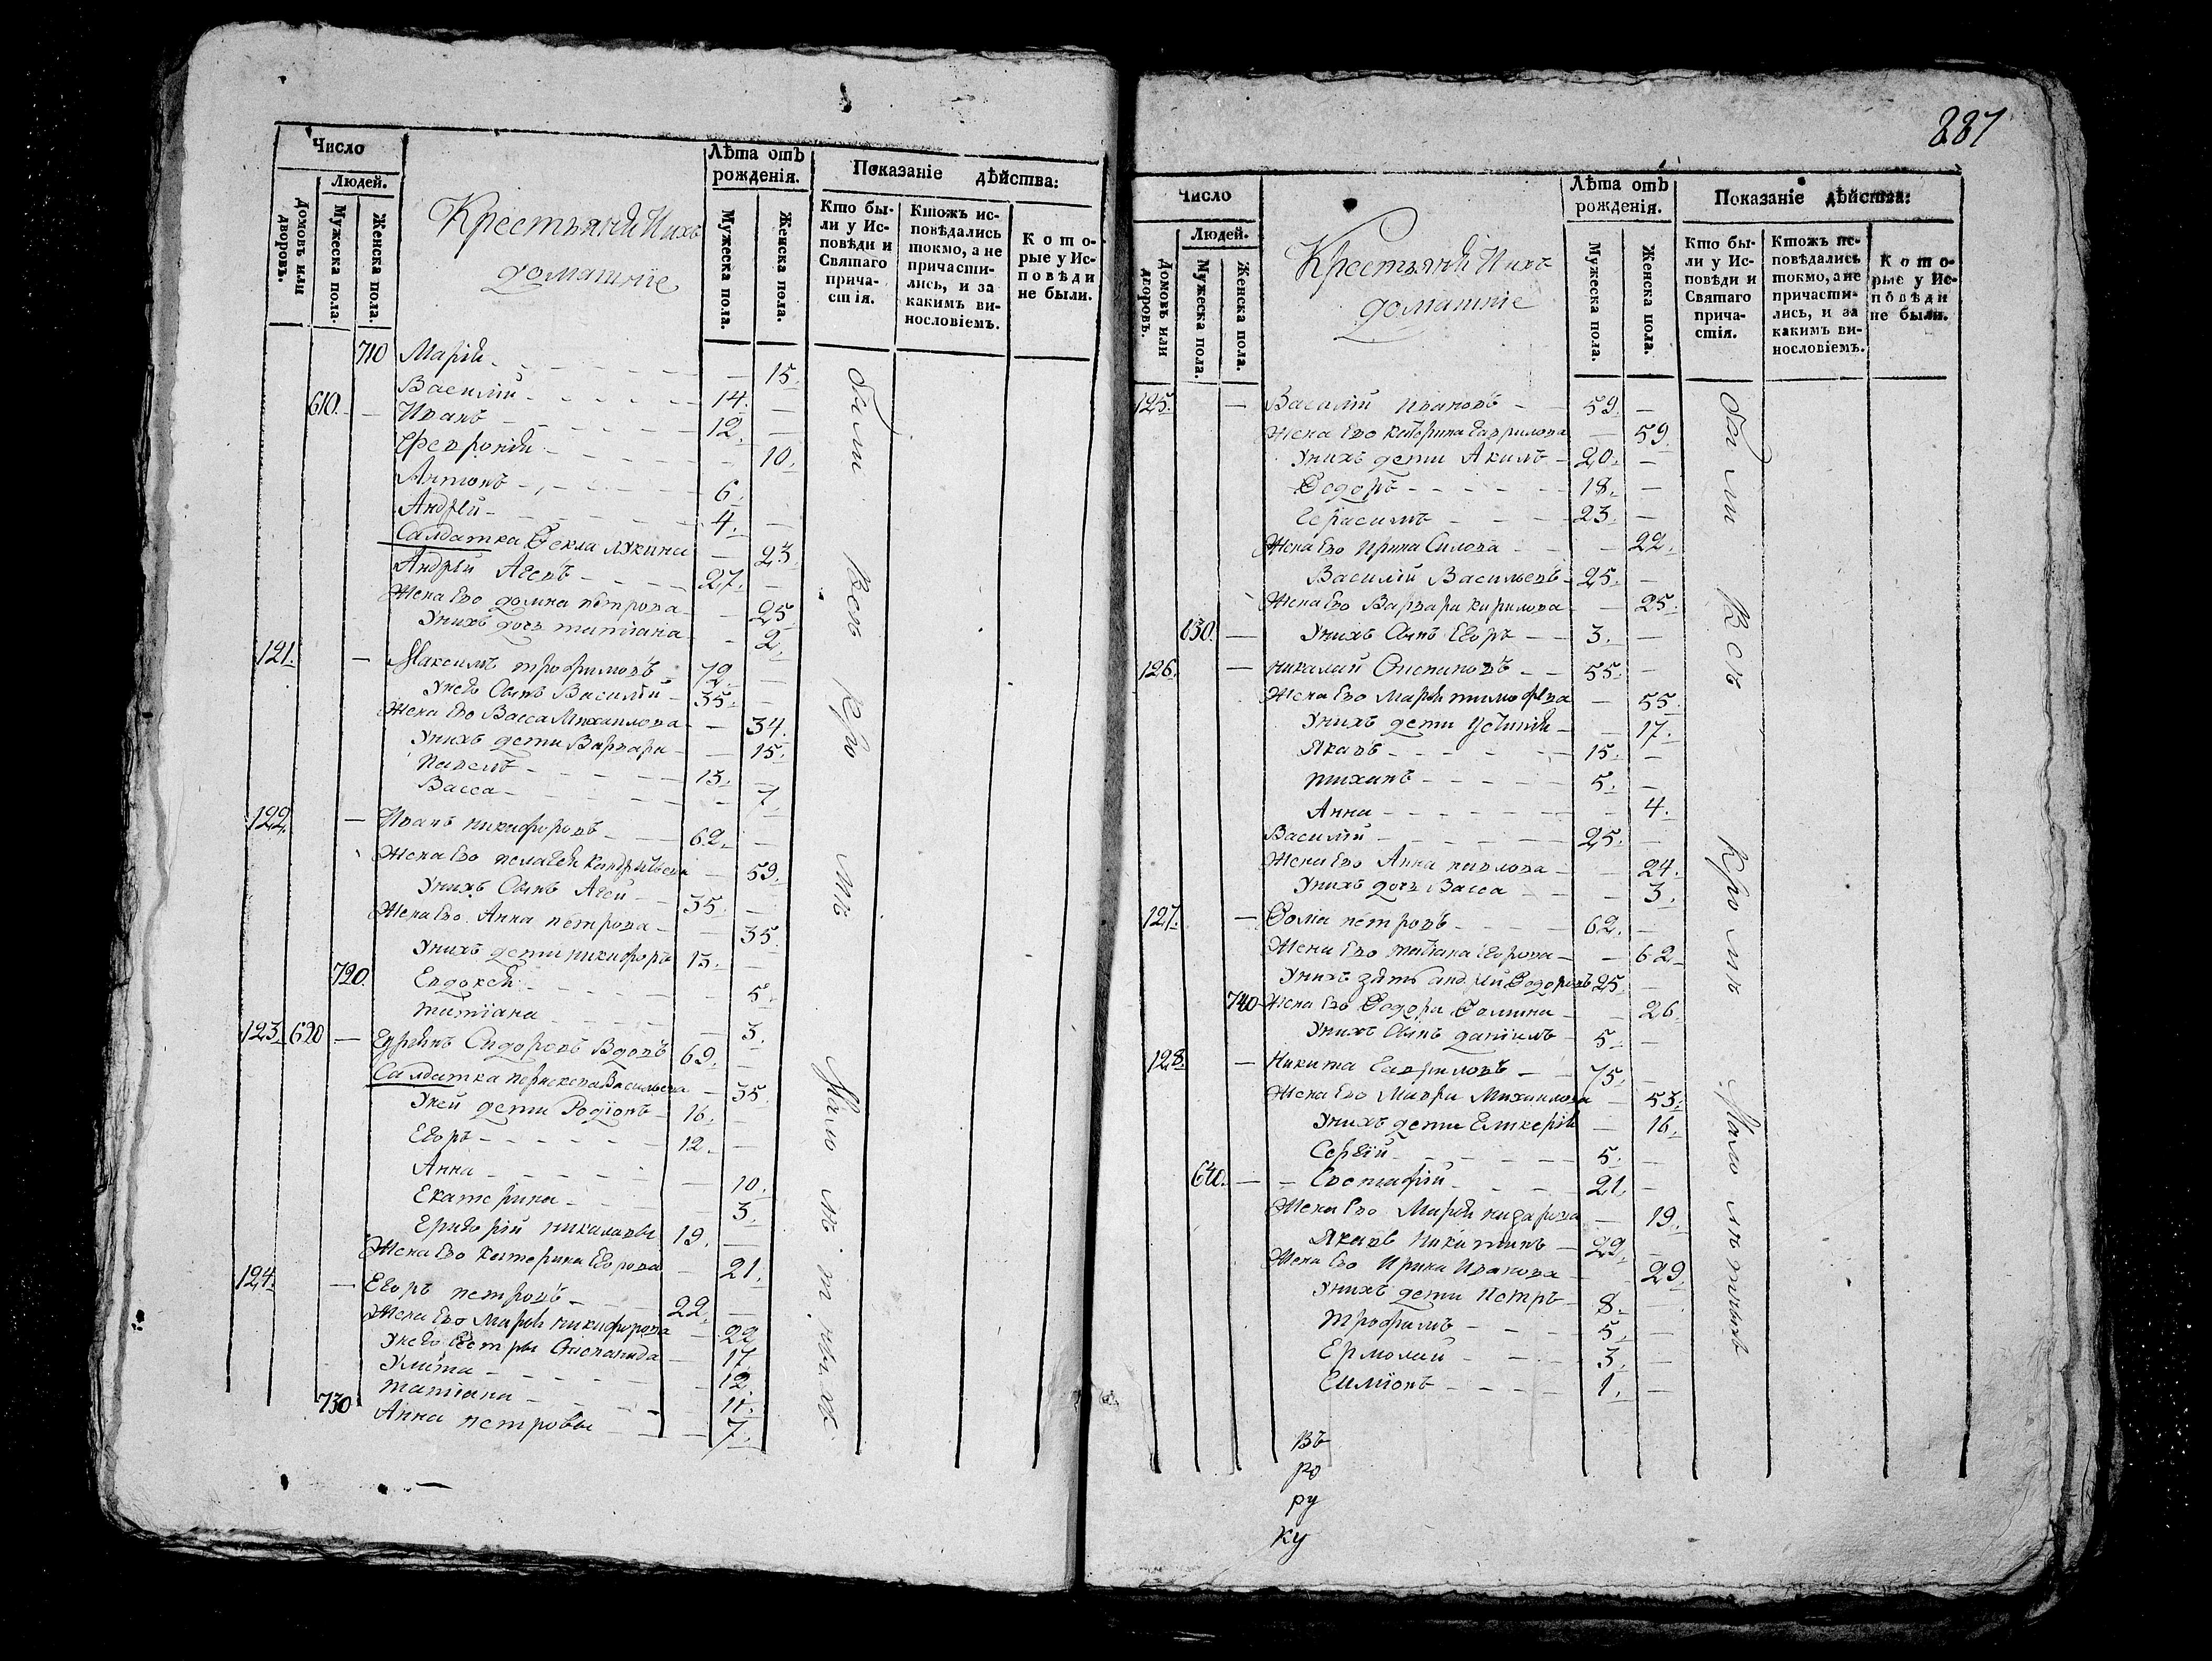 Число
Людей.
Домовъ или дворовъ.
Мужеска пола.
Женска пола.
Крестьяне и ихъ
домашніе
Лѣта отъ рожденія.
Мужеска пола.
Женска пола.
Показаніе дѣйства:
Кто были у Исповѣди и Святаго причастія.
Ктожъ исповѣдались токмо, а не причастились, и за какимъ винословіемъ.
Которые у Исповѣди не были.
710 Марія - 15.
Василій 14. -
610. - Иванъ 12. -
Февронія - 10.
Антонъ 6.
Андрей 4. -
Салдатка Фекла Лукина - 23.
Андрей Агеевъ 27. -
Жена Ево домна петрова - 25
Унихъ дочь татіана - 2.
121. - Максимъ трофимовъ 72. -
Унево Сынъ Василій 35. -
Жена Ево Васса Михаилова - 34.
Унихъ дети Варвара - 15.
павелъ 13. -
Васса - 7.
122. - Иванъ никифоровъ 62. -
Жена Ево пелагея - 59.
Унихъ Сынъ Агей 35. -
Жена Ево Анна петрова - 35.
Унихъ дети никифоръ 13. -
720. Евдокея - 5.
татіана - 3.
123. 620 - Сидоровъ Вдовъ 69. -
Салдатка Васильева - 35.
Уней дети Родіонъ 16. -
Егоръ 12. -
Анна - 10.
Екатерина - 3.
николаевы 19. -
Жена Ево катерина Егорова - 21.
124. - Егоръ петровъ 22. -
Жена Ево Марія никифорова - 22.
Унево Сестры Степанида - 17.
Улита - 12.
татіана - 11.
730 Анна петровы - 7.
были Всѣ Кромѣ Мало лѣтныхъ
887
Число
Людей.
Домовъ или дворовъ.
Мужеска пола.
Женска пола.
Крестьяне и ихъ
домашніе
Лѣта отъ рожденія.
Мужеска пола.
Женска пола.
Показаніе дѣйства:
Кто были у Исповѣди и Святаго причастія.
Ктожъ исповѣдались токмо, а не причастились, и за какимъ винословіемъ.
Которые у Исповѣди не были.
125. - Василій Ивановъ 59. -
Жена Ево катерина Гаврилова - 59.
Унихъ дети Акимъ 20. -
Федоръ 18. -
Герасимъ 23. -
Жена Ево Ирина Силова - 22.
Василій Васильевъ 25. -
Жена Ево Варвара кирилова - 25.
630. - Унихъ Сынъ Егоръ 3. -
126. - николай Степановъ 55. -
Жена Ево Марія тимофева - 55.
Унихъ дети Устинія - 17.
Яковъ 15. -
тихонъ 5. -
Анна - 4.
Василій 25. -
Жена Ево Анна павлова - 24.
Унихъ дочь Васса - 3.
127. - Фома петровъ 62. -
Жена Ево татіана Егорова - 62
Унихъ зять андрей Федоровъ 25. -
740 Жена Ево Федора Фомина - 26.
Унихъ Сынъ даніилъ 5 -
128. - Никита Гавриловъ 75. -
Жена Ево Мавра Михаилова - 53.
Унихъ дети Гликерія - 16.
Сергій 5. -
640. - Евстафій 21. -
Жена Ево Марія назарова - 19.
Яковъ Никитинъ 29. -
Жена Ево Ирина Иванова - 29.
Унихъ дети Петръ 8. -
трофимъ 5. -
Ермолай 3. -
Симіонъ 1. -
были Всѣ Кромѣ Мало лѣтныхъ
въ
ро
ру
ку